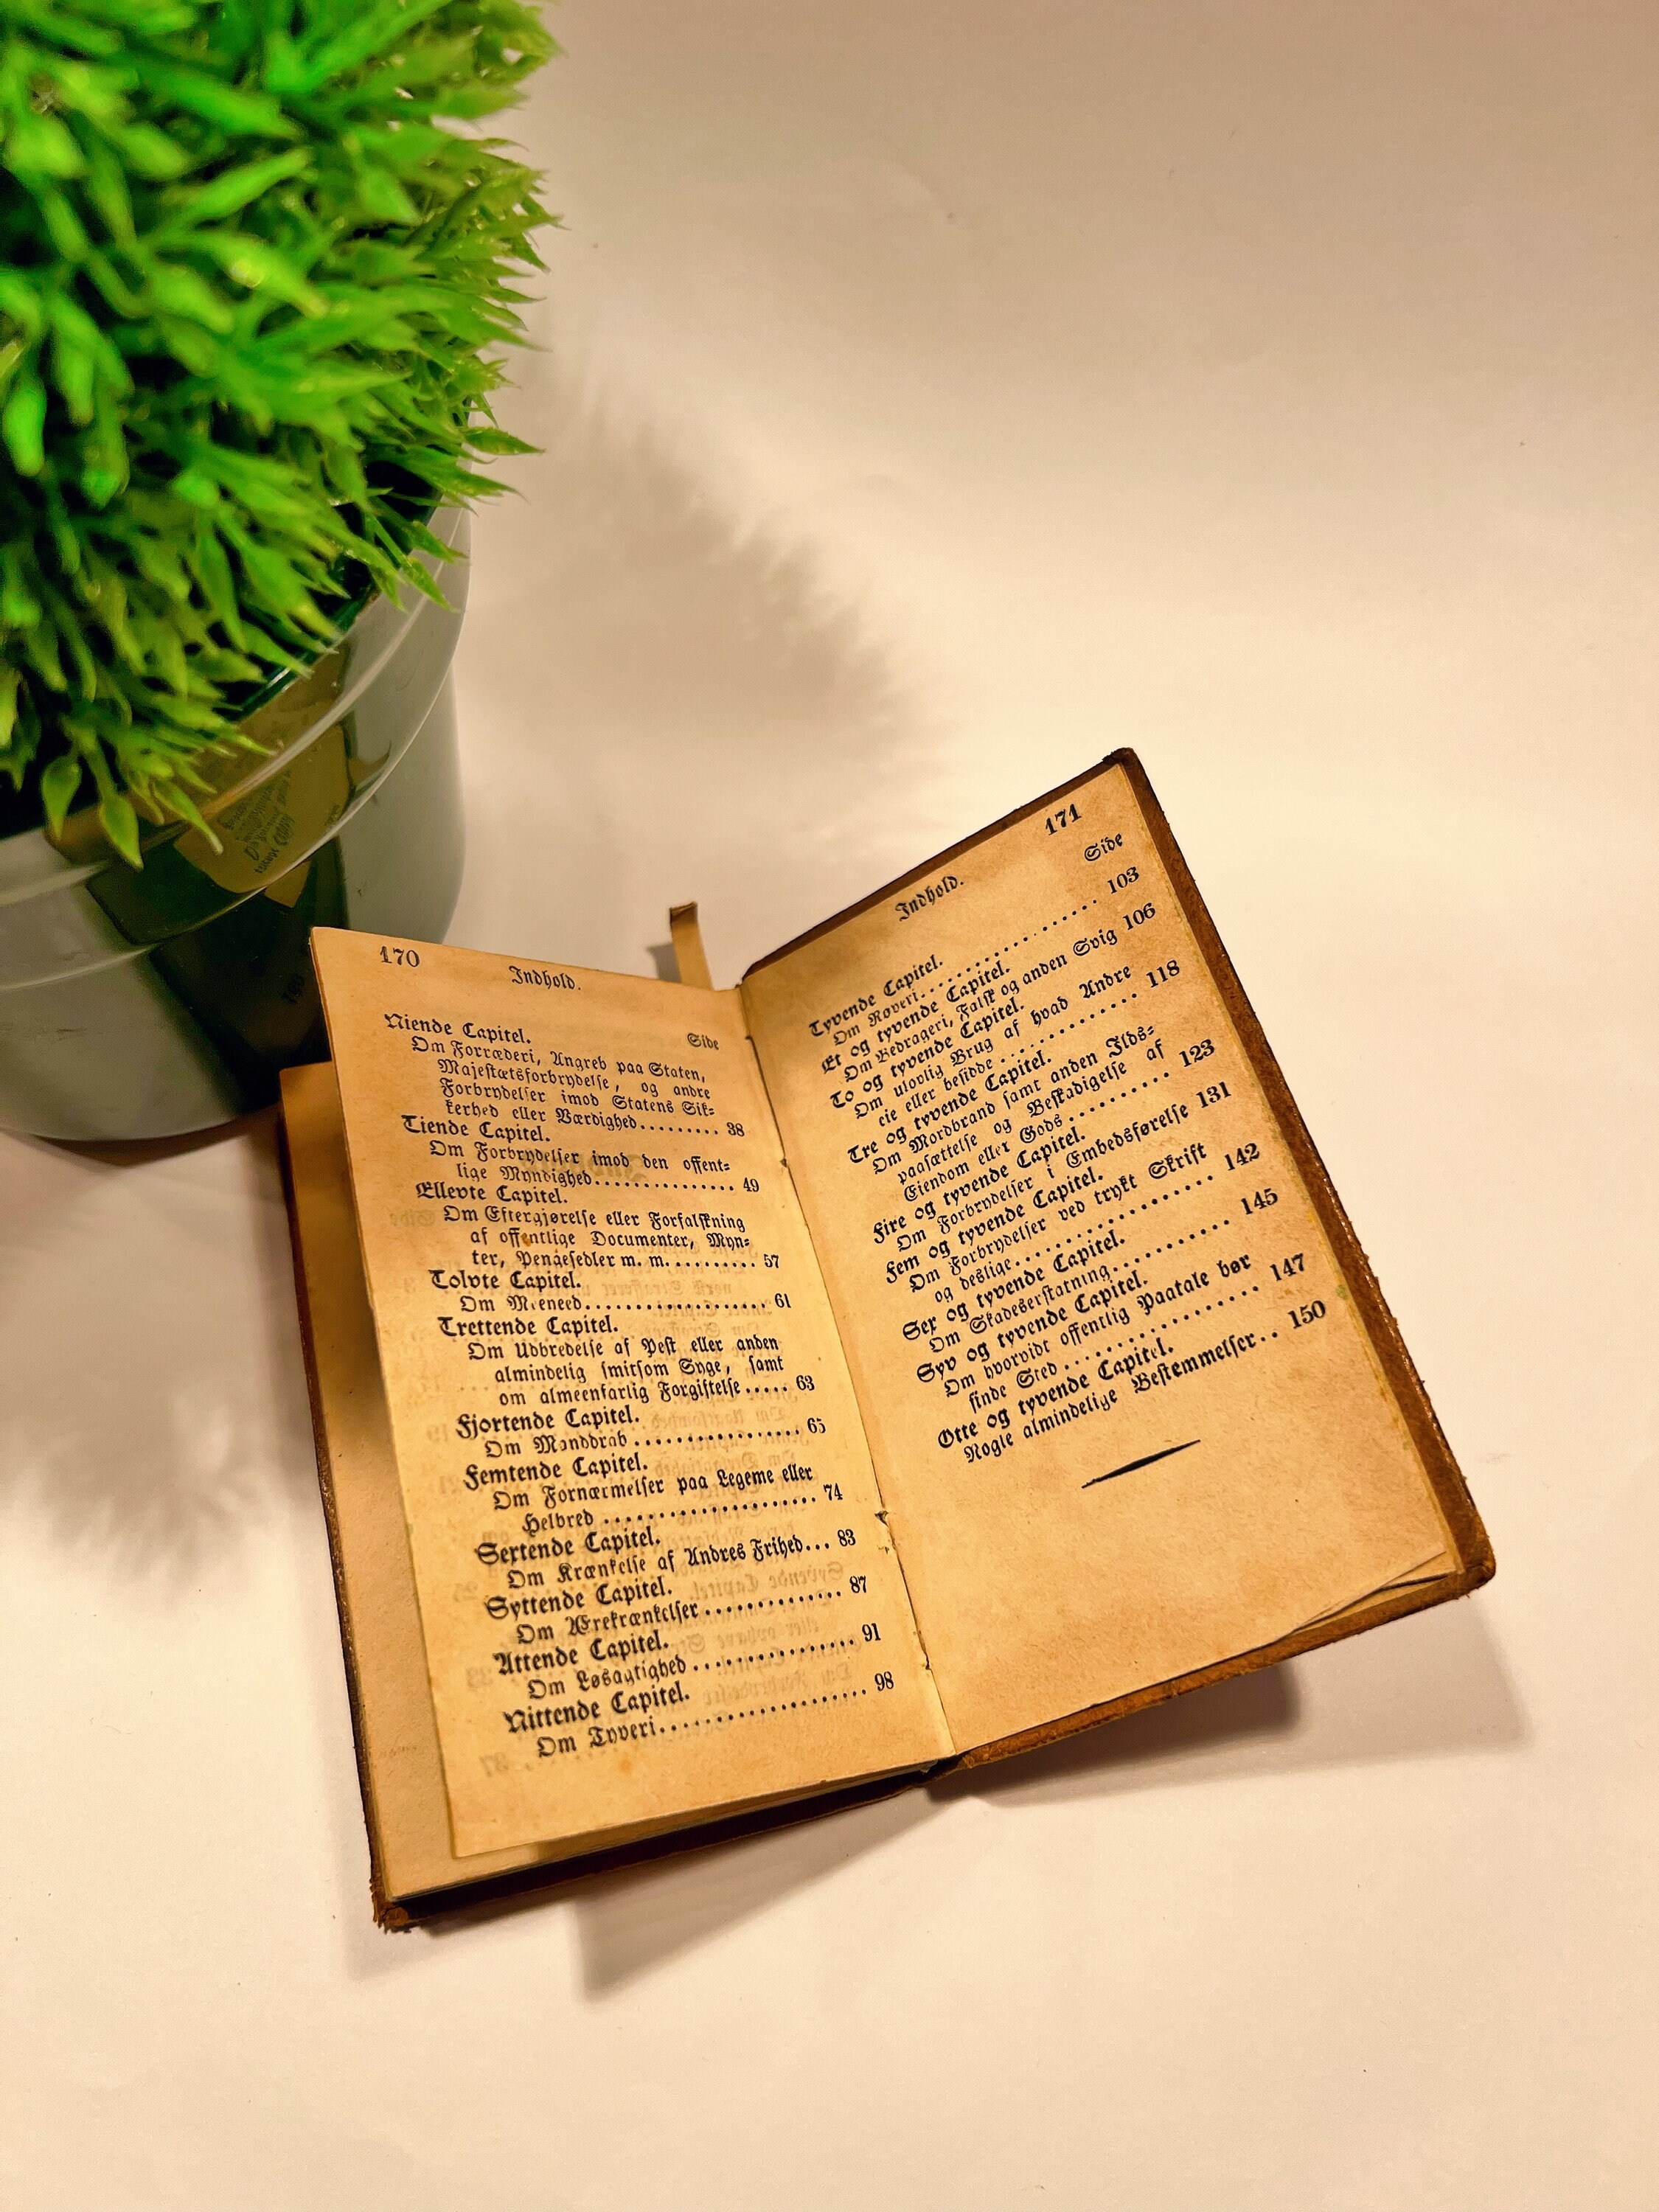 170
Indhold.
Side
Niende Capitel.
Om Forræderi, Angreb paa Staten,
Majestætsforbrydelse, og andre
Forbrydelser imod Statens Sik-
kerhed eller Værdighed......... 38
Tiende Capitel.
Om Forbrydelser imod den offent-
lige Myndighed............... 49
Ellevte Capitel.
Om Eftergjørelse eller Forfalskning
af offentlige Documenter, Myn-
ter, Pengesedler m. m........... 57
Tolvte Capitel.
Om Meeneed................... 61
Trettende Capitel.
Om Udbredelse af Pest eller anden
almindelig smitsom Syge, samt
om almeenfarlig Forgiftelse..... 63
Fjortende Capitel.
Om Manddrab................. 65
Femtende Capitel.
Om Fornærmelser paa Legeme eller
Helbred ...................... 74
Sextende Capitel.
Om Krænkelse af Andres Frihed... 83
Syttende Capitel.
Om Ærekrænkelser.............. 87
Attende Capitel.
Om Løsagtighed................ 91
Nittende Capitel.
Om Tyveri..................... 98
171
Indhold.
Side
Tyvende Capitel.
Om Røveri..................... 103
Et og tyvende Capitel.
Om Bedrageri, Falsk og anden Svig 106
To og tyvende Capitel.
Om ulovlig Brug af hvad Andre
eie eller besidde .............. 118
Tre og tyvende Capitel.
Om Mordbrand samt anden Ilds-
paasættelse og Beskadigelse af
Eiendom eller Gods............ 123
Fire og tyvende Capitel.
Om Forbrydelser i Embedsførelse 131
Fem og tyvende Capitel.
Om Forbrydelser ved trykt Skrift
og deslige..................... 142
Sex og tyvende Capitel.
Om Skadeserstatning............ 145
Syv og tyvende Capitel.
Om hvorvidt offentlig Paatale bør
finde Sted..................... 147
Otte og tyvende Capitel.
Nogle almindelige Bestemmelser.. 150